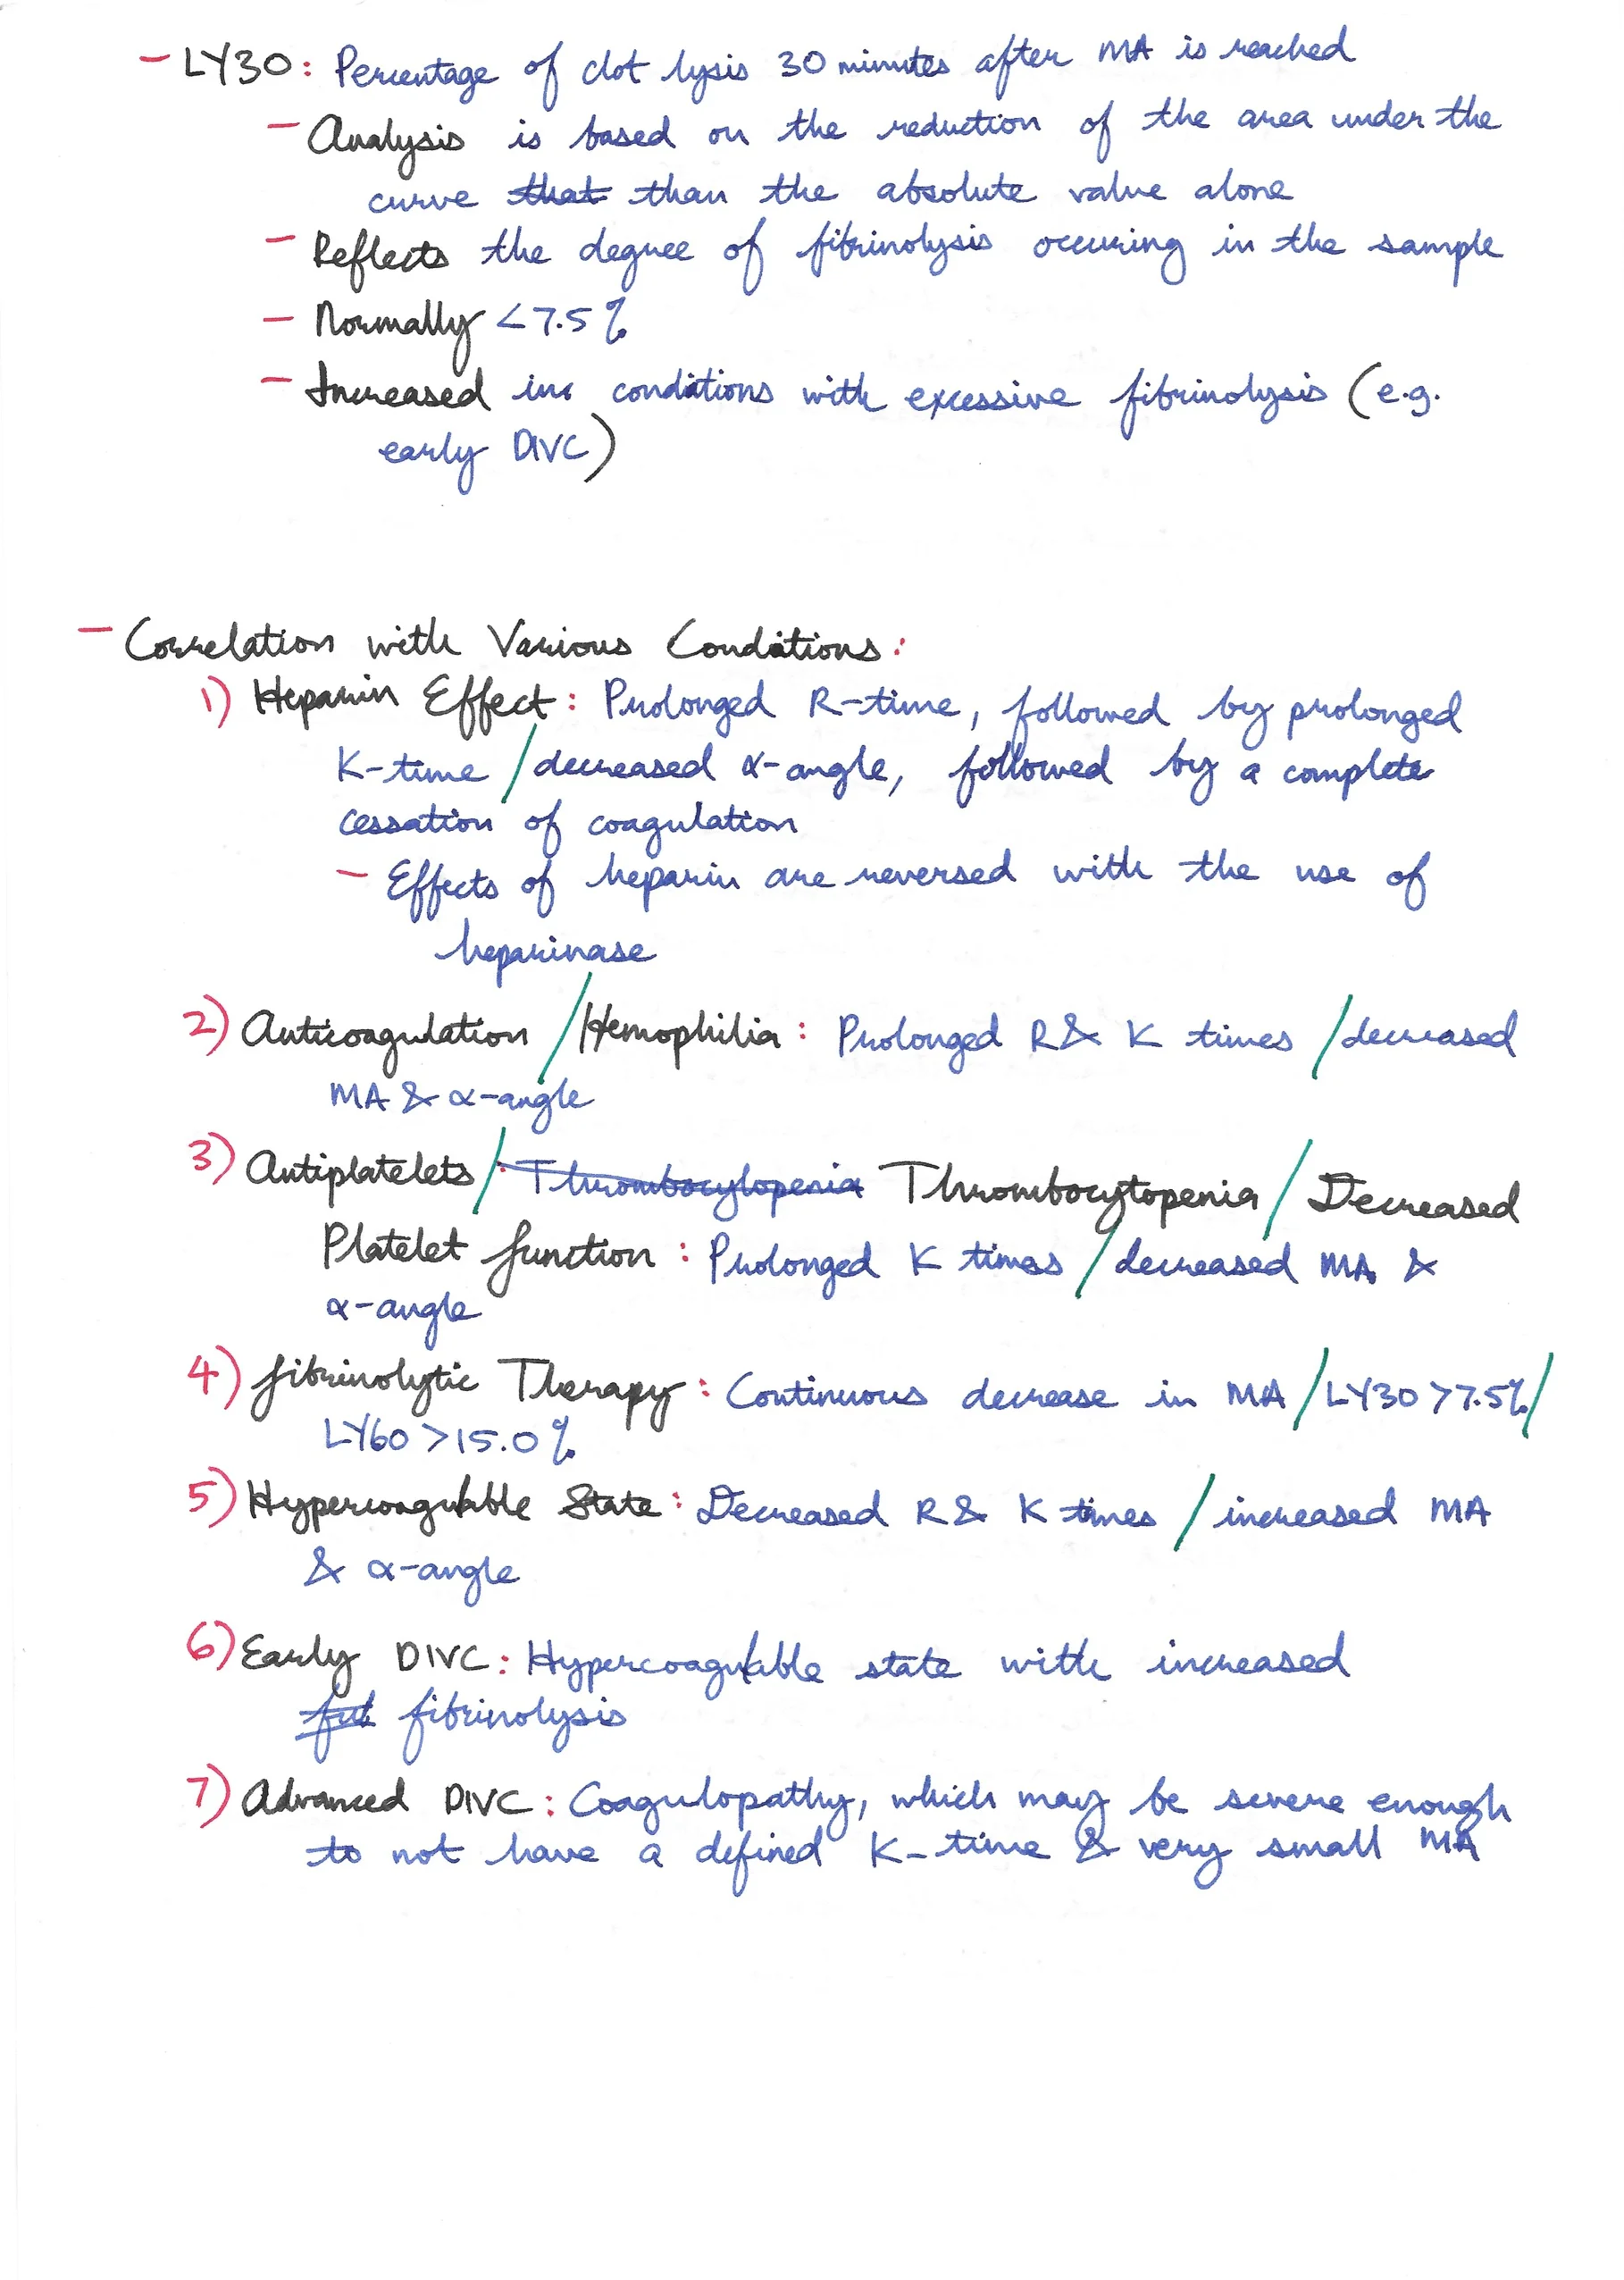 - LY30: Percentage of clot lysis 30 minutes after MA is reached
- Analysis is based on the reduction of the area under the
curve ~~that~~ than the absolute value alone
- Reflects the degree of fibrinolysis occuring in the sample
- Normally <7.5%
- Increased in conditions with excessive fibrinolysis (e.g.
early DIVC)
- Correlation with Various Conditions:
1) Heparin Effect: Prolonged R-time, followed by prolonged
K-time / decreased α-angle, followed by a complete
cessation of coagulation
- Effects of heparin are reversed with the use of
heparinase
2) Anticoagulation / Hemophilia: Prolonged R & K times / decreased
MA & α-angle
3) Antiplatelets / ~~: Thrombocytopenia~~ Thrombocytopenia / Decreased
Platelet function: Prolonged K times / decreased MA &
α-angle
4) fibrinolytic Therapy: Continuous decrease in MA / LY30 >7.5% /
LY60 >15.0%
5) Hypercoagulable State: Decreased R & K times / increased MA
& α-angle
6) Early DIVC: Hypercoagulable state with increased
fibrinolysis
7) Advanced DIVC: Coagulopathy, which may be severe enough
to not have a defined K-time & very small MA